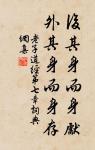 後其身而身獻
外其身而身存
老子道經第七章詞典
網集